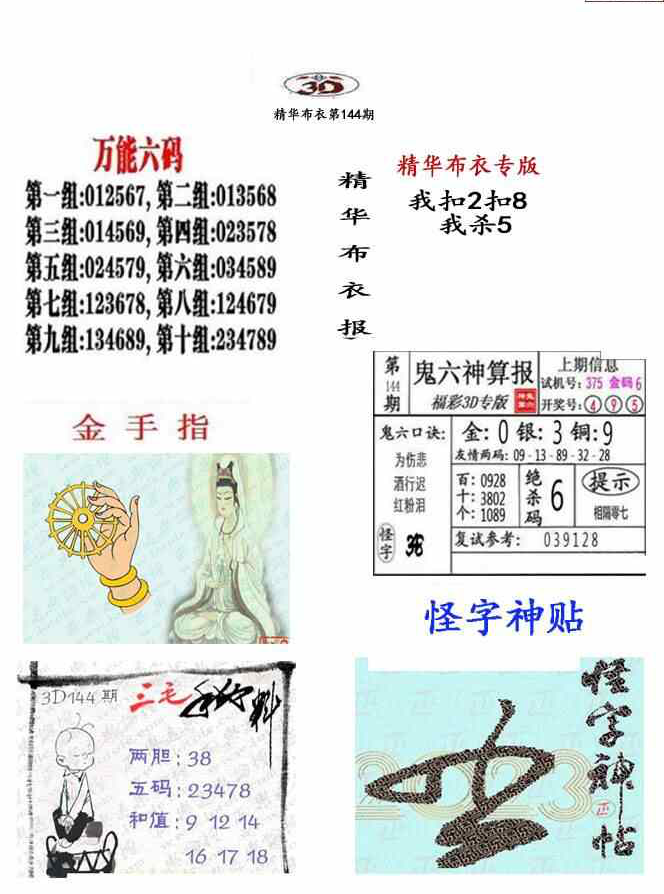 3D
精华布衣第144期
万能六码
第一组:012567, 第二组:013568
第三组:014569, 第四组:023578
第五组:024579, 第六组:034589
第七组:123678, 第八组:124679
第九组:134689, 第十组:234789
精华布衣报
精华布衣专版
我扣2扣8
我杀5
第144期
鬼六神算报
福彩3D专版
上期信息
试机号: 375 金码6
开奖号: 4 9 5
鬼六口诀:
为伤悲
酒行迟
红粉泪
怪字
金: 0 银: 3 铜: 9
友情两码: 09-13-89-32-28
百: 0928
十: 3802
个: 1089
绝杀码 6
提示
相隔零七
复试参考: 039128
金手指
怪字神贴
3D144期 三毛
两胆: 38
五码: 23478
和值: 9 12 14
16 17 18
怪字神帖
正
2023